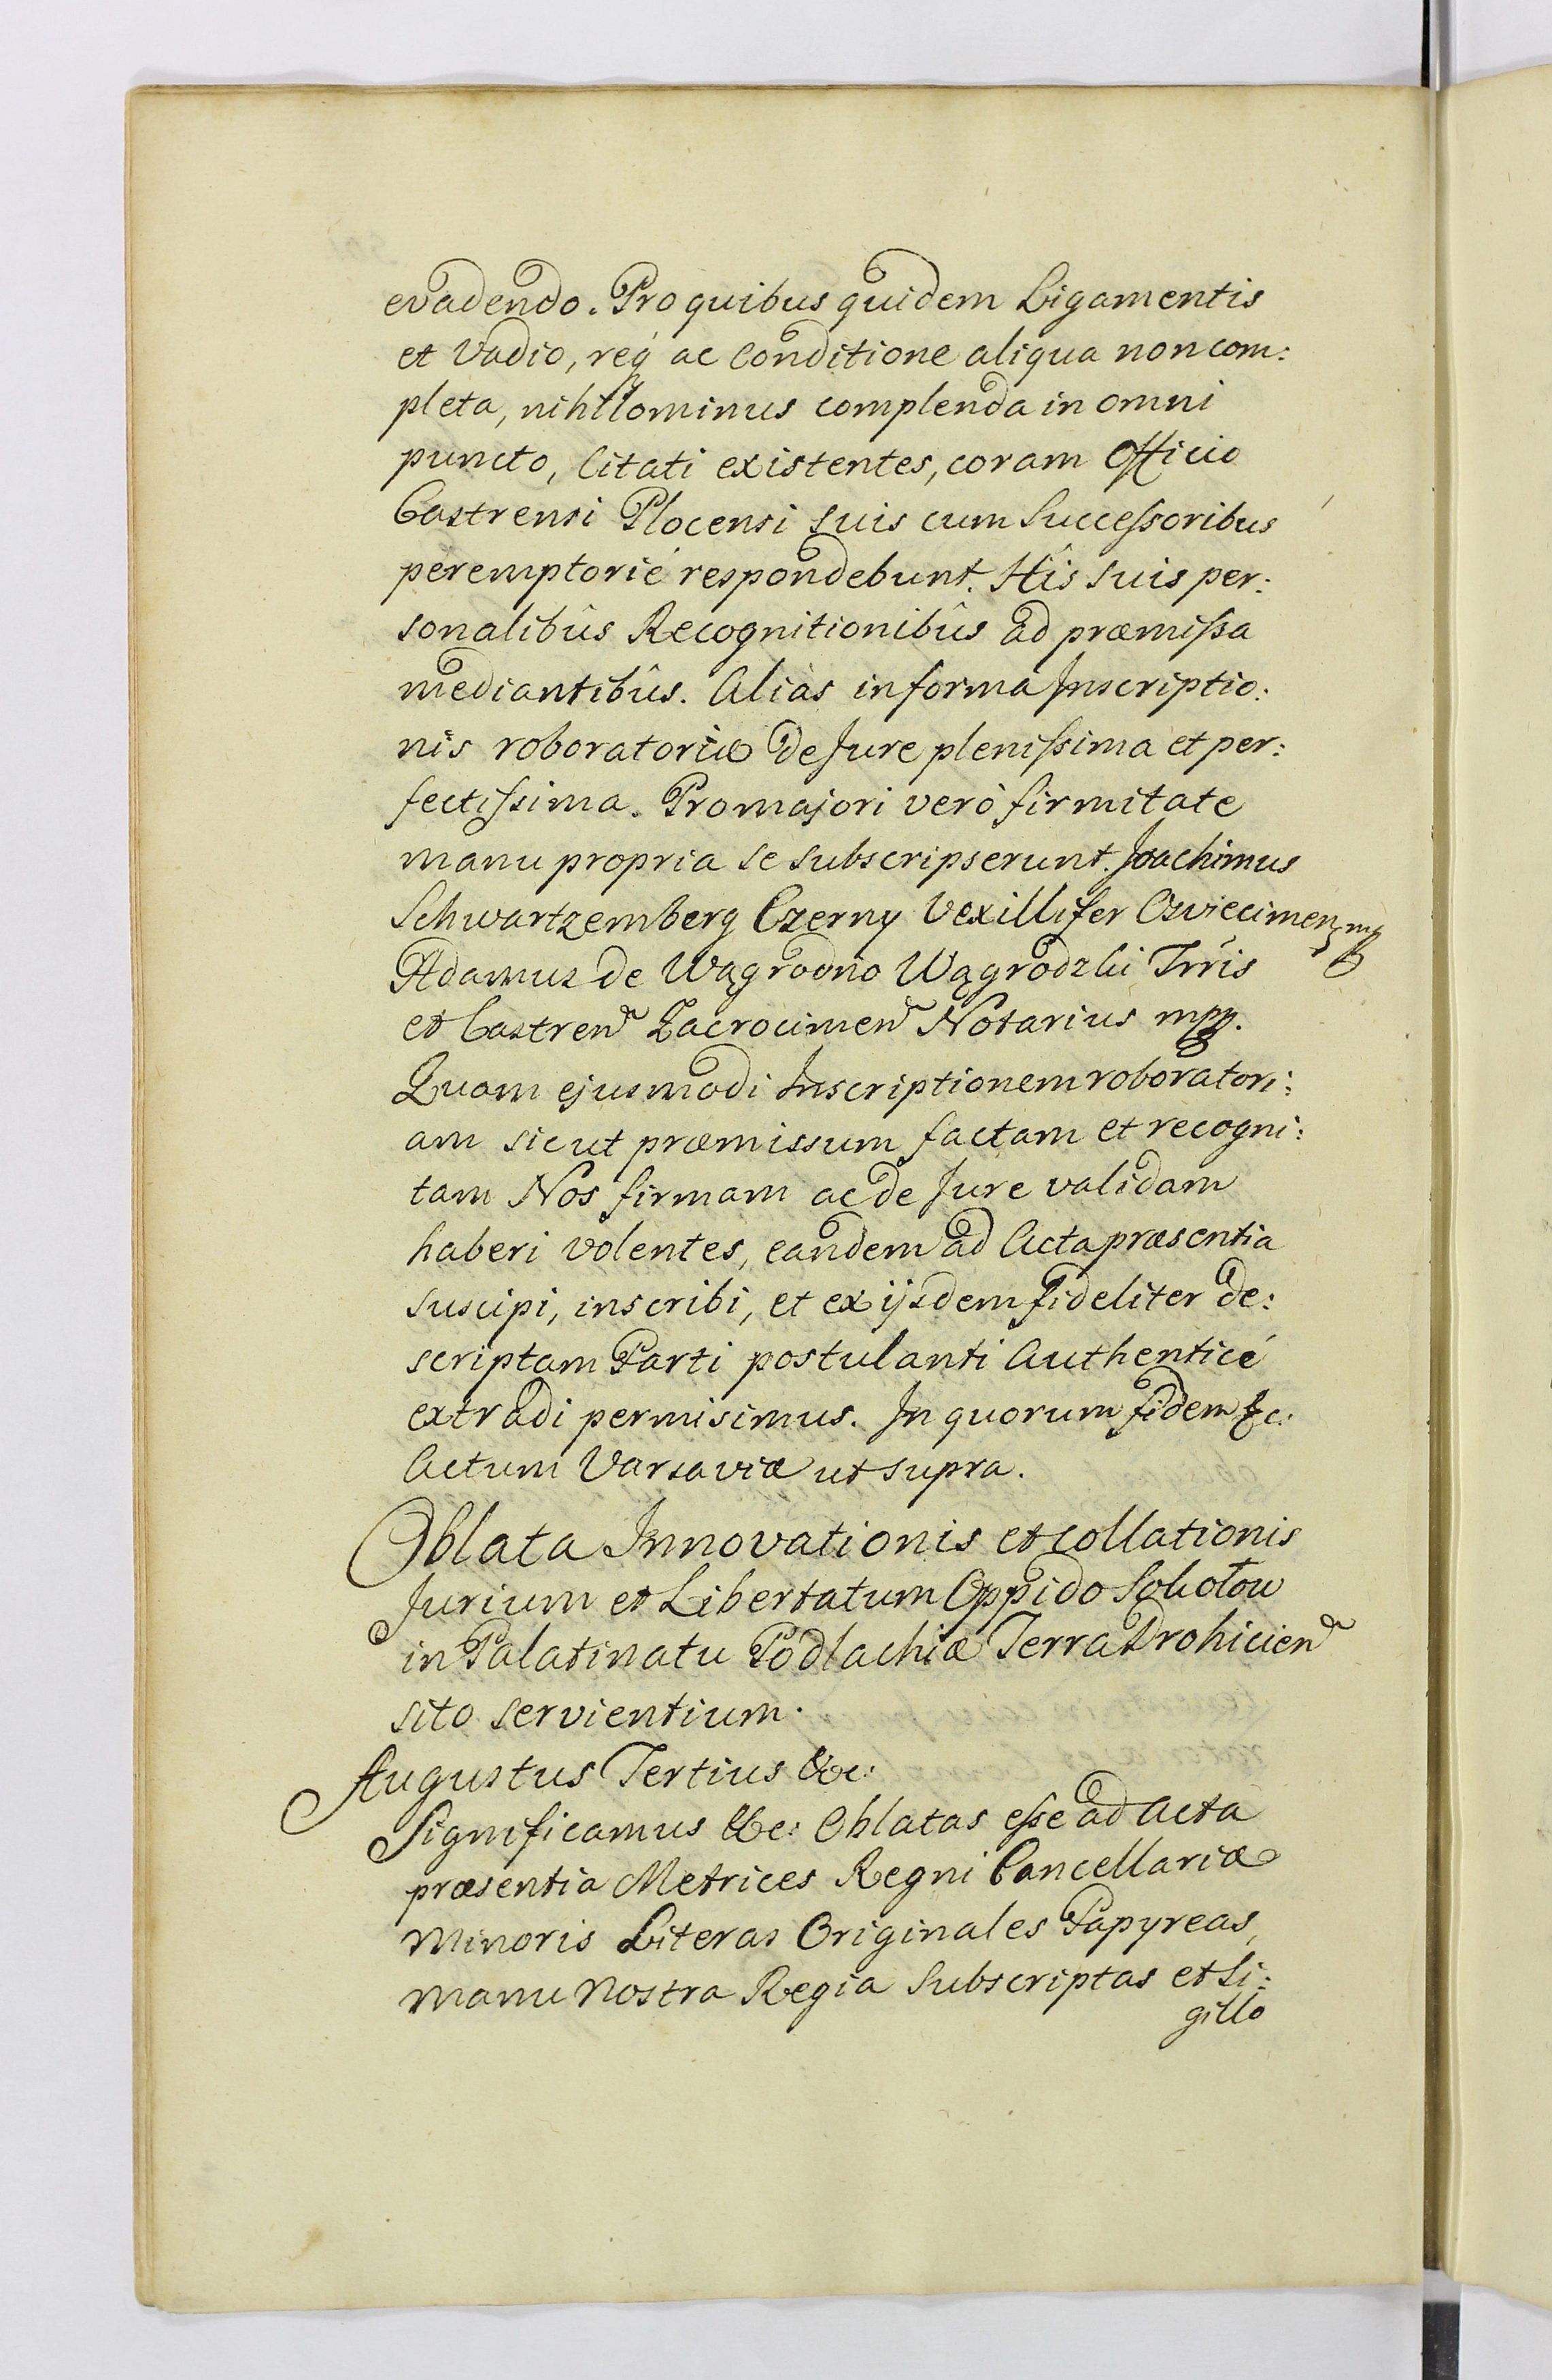 evadendo. Pro quibus quidem Ligamentis
et Vadio, req́ ac Conditione aliqua non com:
pleta, nihilominus complenda in omni
puncto, Citati existentes, coram Officio
Castrensi Plocensi suis cum Successoribus
peremptorié respondebunt. Hîs suis per:
sonalibûs Recognitionibûs ad præmissa
mediantibûs. Aliàs in forma Inscriptio:
nis roboratoriæ de Jure plenissima et per:
fectissima. Pro majori verò firmitate
manu propria se subscripserunt. Joachimus
Schwartzemberg Czerny Vexillifer Osviecimen mp
Adamus de Wągrodno Wągrodzki Trris
et Castren Zacrocimen Notarius mpp.
Quam ejusmodi Inscriptionem roboratori:
am sicut præmissum factam et recogni:
tam Nos firmam ac de Jure validam
haberi volentes, eandem ad Acta præsentia
suscipi, inscribi, et ex ijsdem fideliter de:
scriptam Parti postulanti Authenticé
extradi permisimus. In quorum fidem &c:
Actum Varsaviæ ut supra.
Oblata Innovationis et collationis
Jurium et Libertatum Oppido Sokołow
in Palatinatu Podlachiæ Terra Drohicien
sito servientium.
Augustus Tertius &c:
Significamus &c: Oblatas esse ad Acta
præsentia Metrices Regni Cancellariæ
Minoris Literas Originales Papyreas,
manu Nostra Regia Subscriptas et Si:
gillo